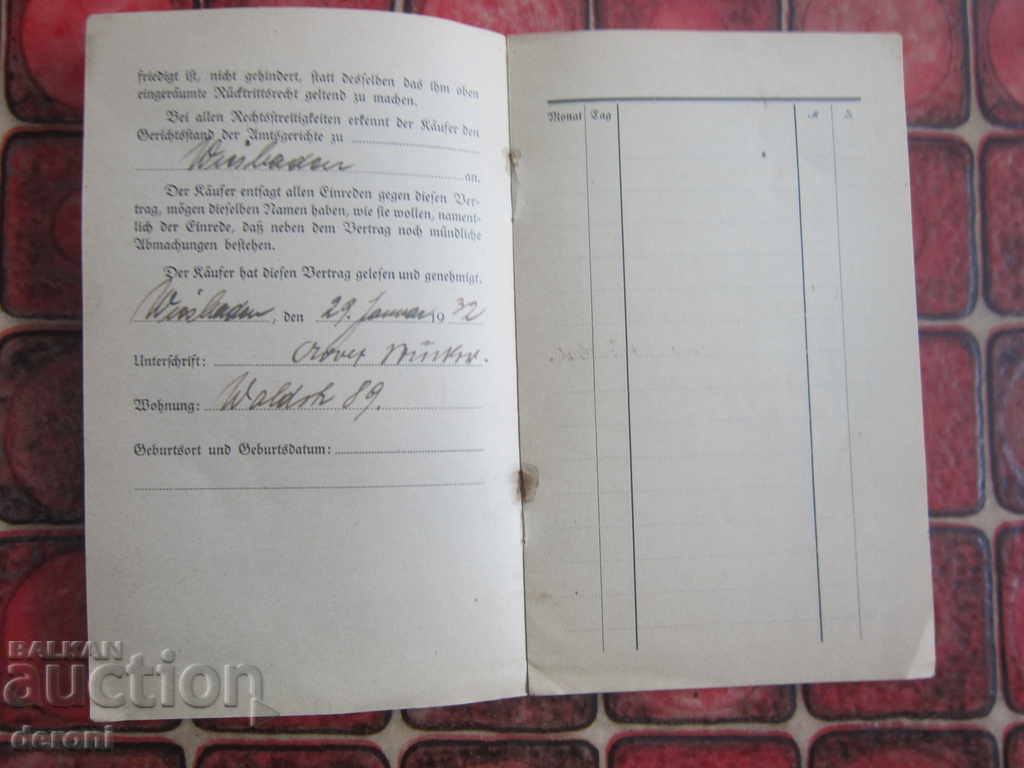 friedigt ist, nicht gehindert, statt desselben das ihm oben
eingeräumte Rücktrittsrecht geltend zu machen.
Bei allen Rechtsstreitigkeiten erkennt der Käufer den
Gerichtsstand der Amtsgerichte zu
Wiesbaden an.
Der Käufer entsagt allen Einreden gegen diesen Ver-
trag, mögen dieselben Namen haben, wie sie wollen, nament-
lich der Einrede, daß neben dem Vertrag noch mündliche
Abmachungen bestehen.
Der Käufer hat diesen Vertrag gelesen und genehmigt.
Wiesbaden, den 29. Januar 1932
Unterschrift:
Wohnung: 89.
Geburtsort und Geburtsdatum:
Monat Tag
BALKAN
auction
deroni